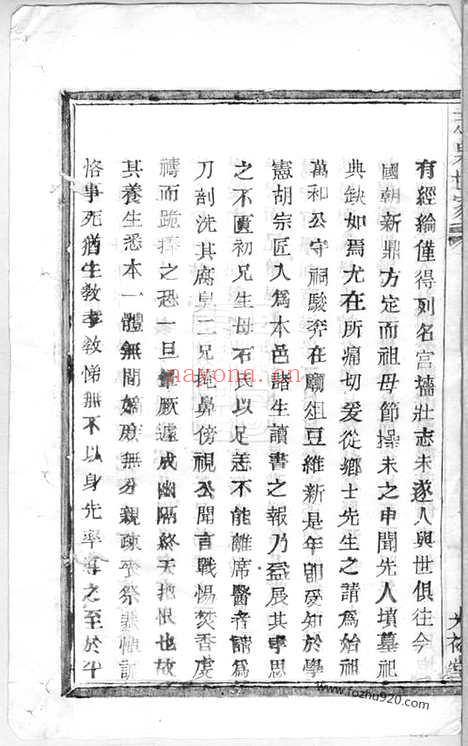 有經綸僅得列名宫墻壯志未遂人與世俱往今
國朝新鼎方定而祖母節操未之申聞先人墳墓祀
典缺如焉尤在所痛切爰從鄉士先生之請爲始祖
萬和公守祠駿奔在廟俎豆維新是年卽受知於學
憲胡宗匠入爲本邑諸生讀書之報乃益展其孝思
之不匱初兄生母石氏以足恙不能離席醫者謂爲
刀剖洗其腐臭二兄掩鼻傍視公聞言戰惕焚香虔
禱而跪
之恐一旦
厥遽成幽隔終天抱恨也故
其養生悉本一體無間嫡庶無分親疎
祭悲
恪事死猶生敎孝敎悌無不以身先率
之至於平
世家
nayona.cn
www.fozhu920.com